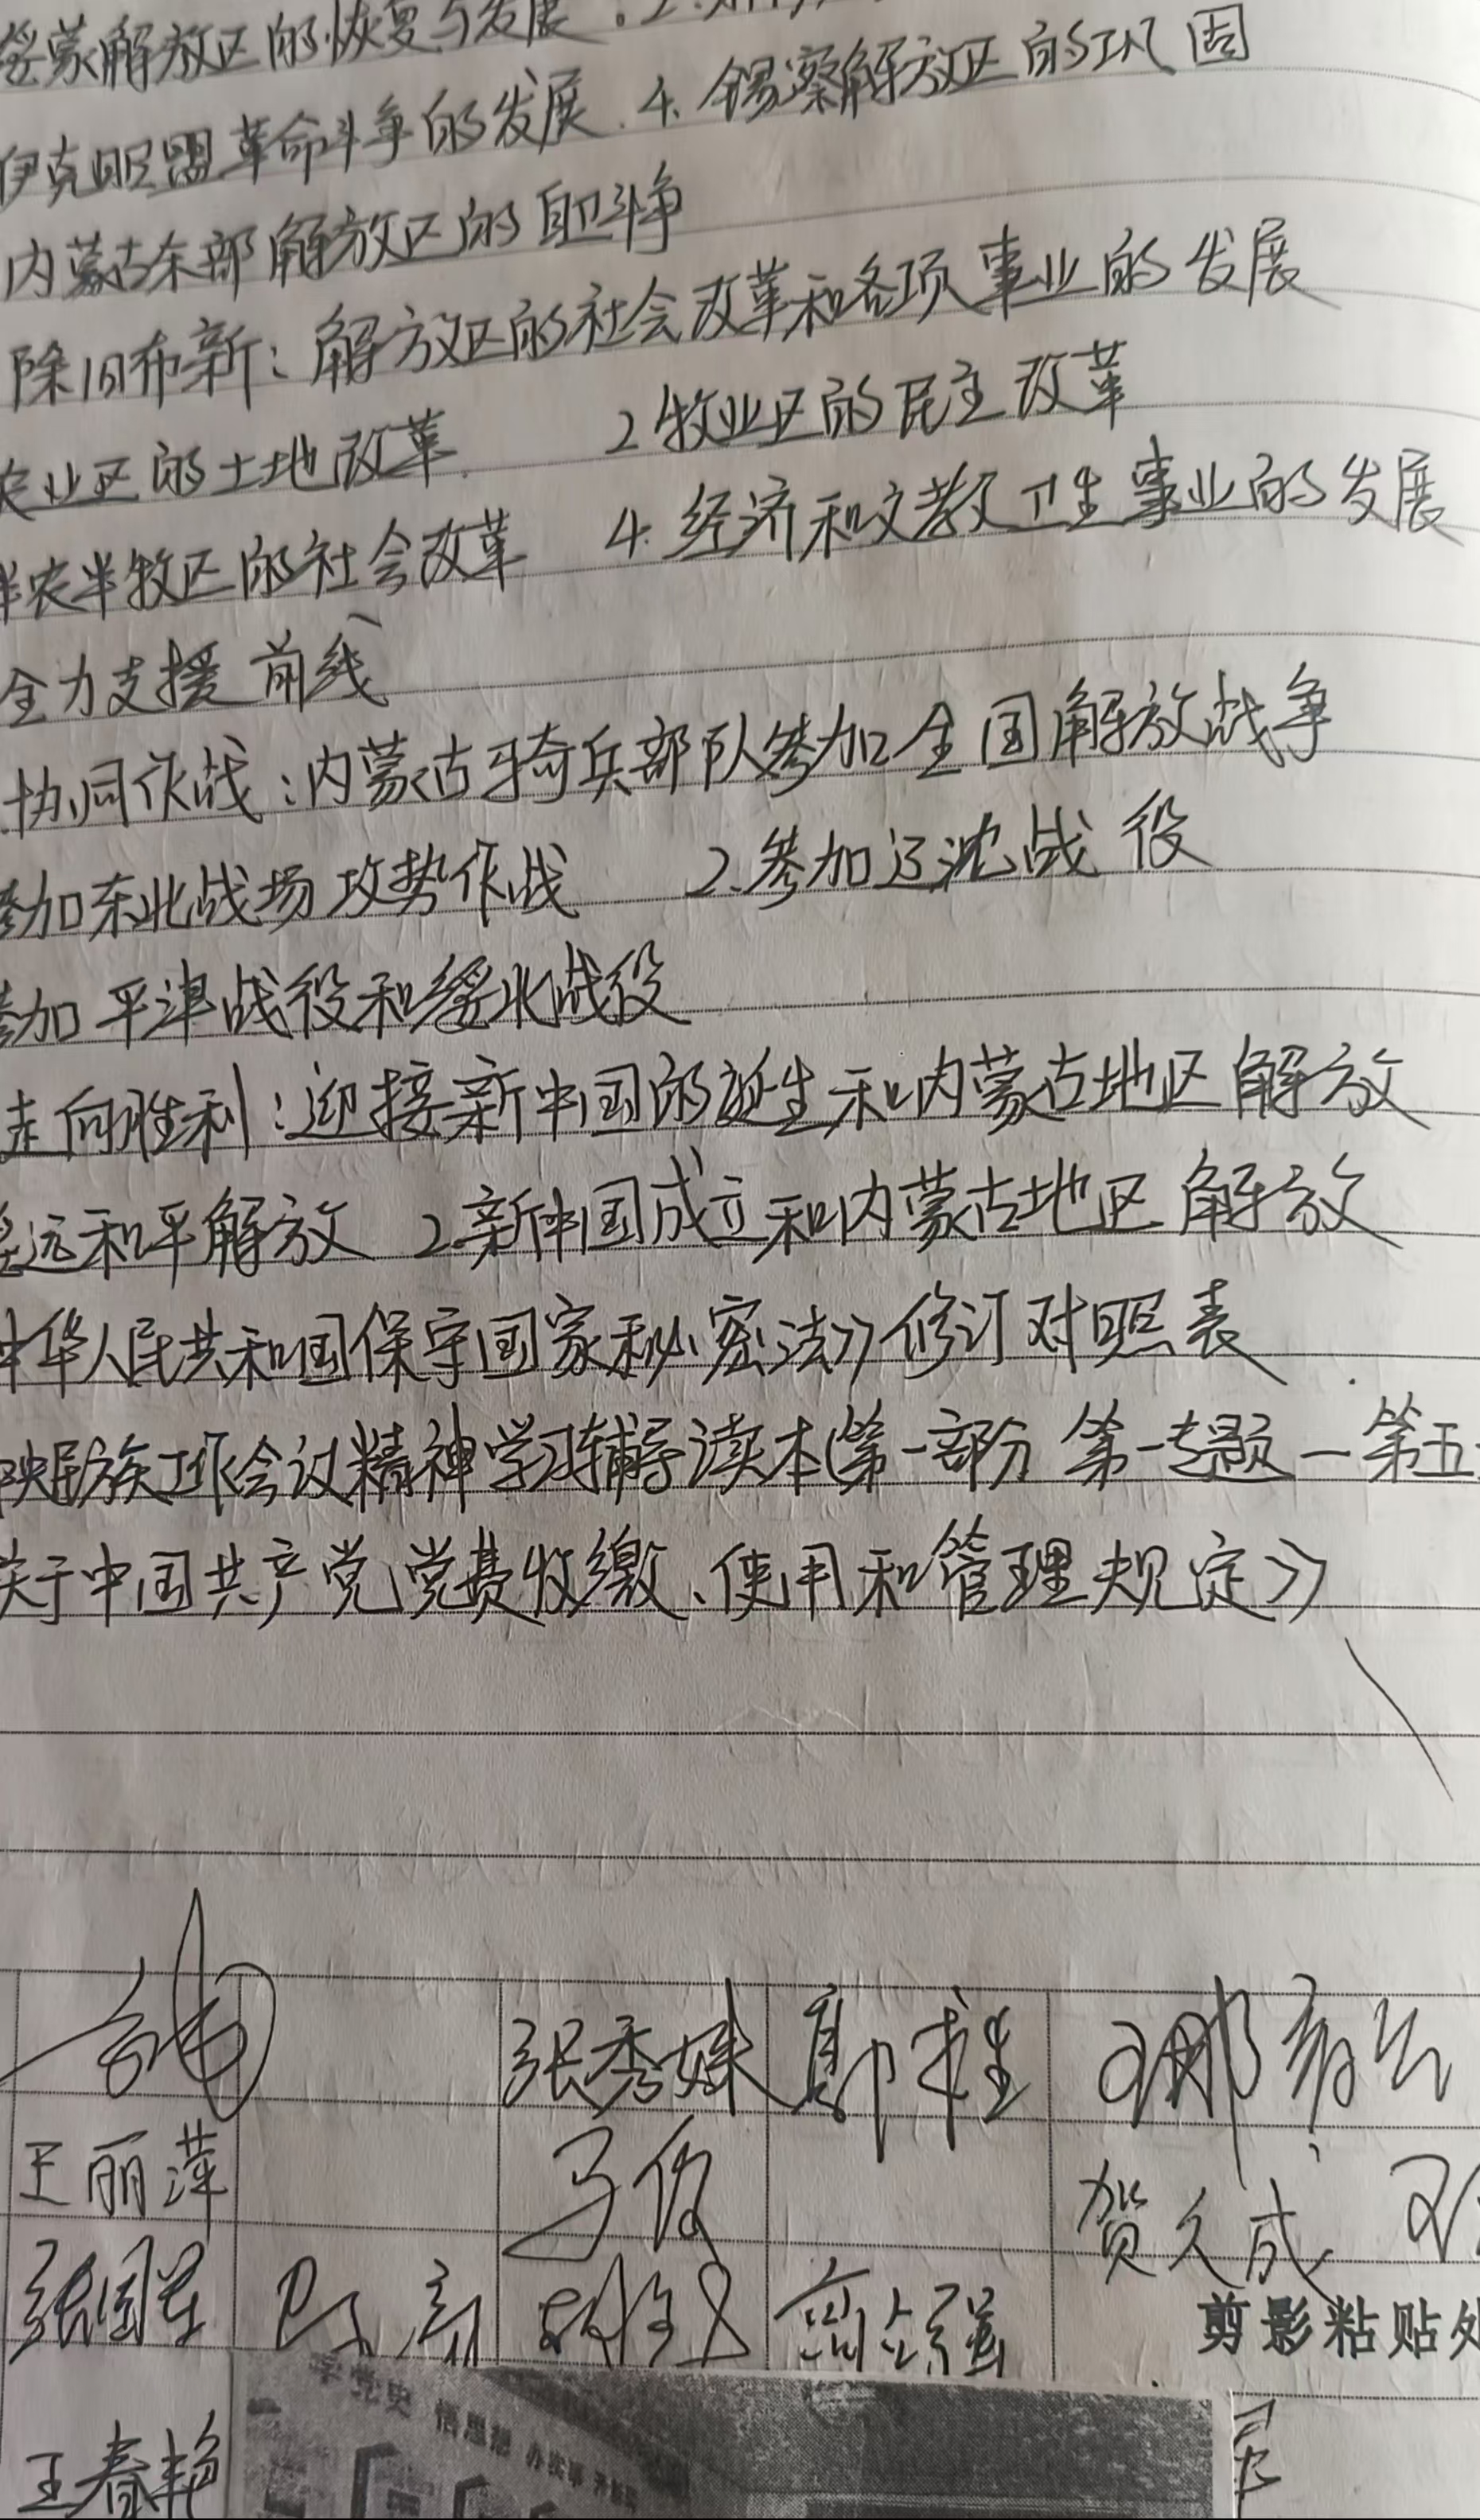 绥蒙解放区的恢复与发展。2.
伊克昭盟革命斗争的发展 4.锡察解放区的巩固
内蒙古东部解放区的自卫斗争
除旧布新:解放区的社会改革和各项事业的发展
农业区的土地改革 2牧业区的民主改革
半农半牧区的社会改革 4.经济和文教卫生事业的发展
全力支援前线
协同作战:内蒙古骑兵部队参加全国解放战争
参加东北战场攻势作战 2.参加辽沈战役
参加平津战役和绥北战役
走向胜利:迎接新中国的诞生和内蒙古地区解放
绥远和平解放 2.新中国成立和内蒙古地区解放
中华人民共和国保守国家秘密法》修订对照表
央民族工作会议精神学习辅导读本(第一部分 第一专题—第五
关于中国共产党党费收缴、使用和管理规定》
张秀妹
王丽萍 马俊 贺久成
张国军
剪影粘贴处
学党史 悟思想 办实事 开新局
王春艳